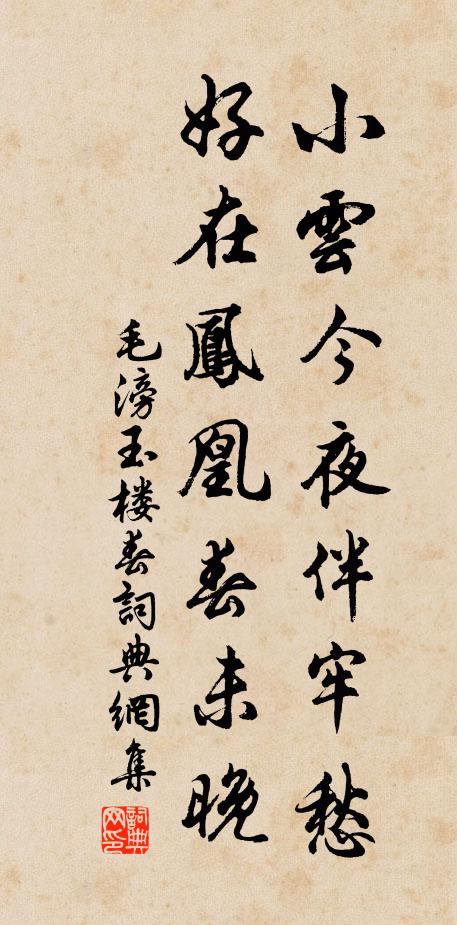 小雲今夜伴牢愁
好在鳳凰春未晚
毛滂玉楼春詞典網集
詞典网印